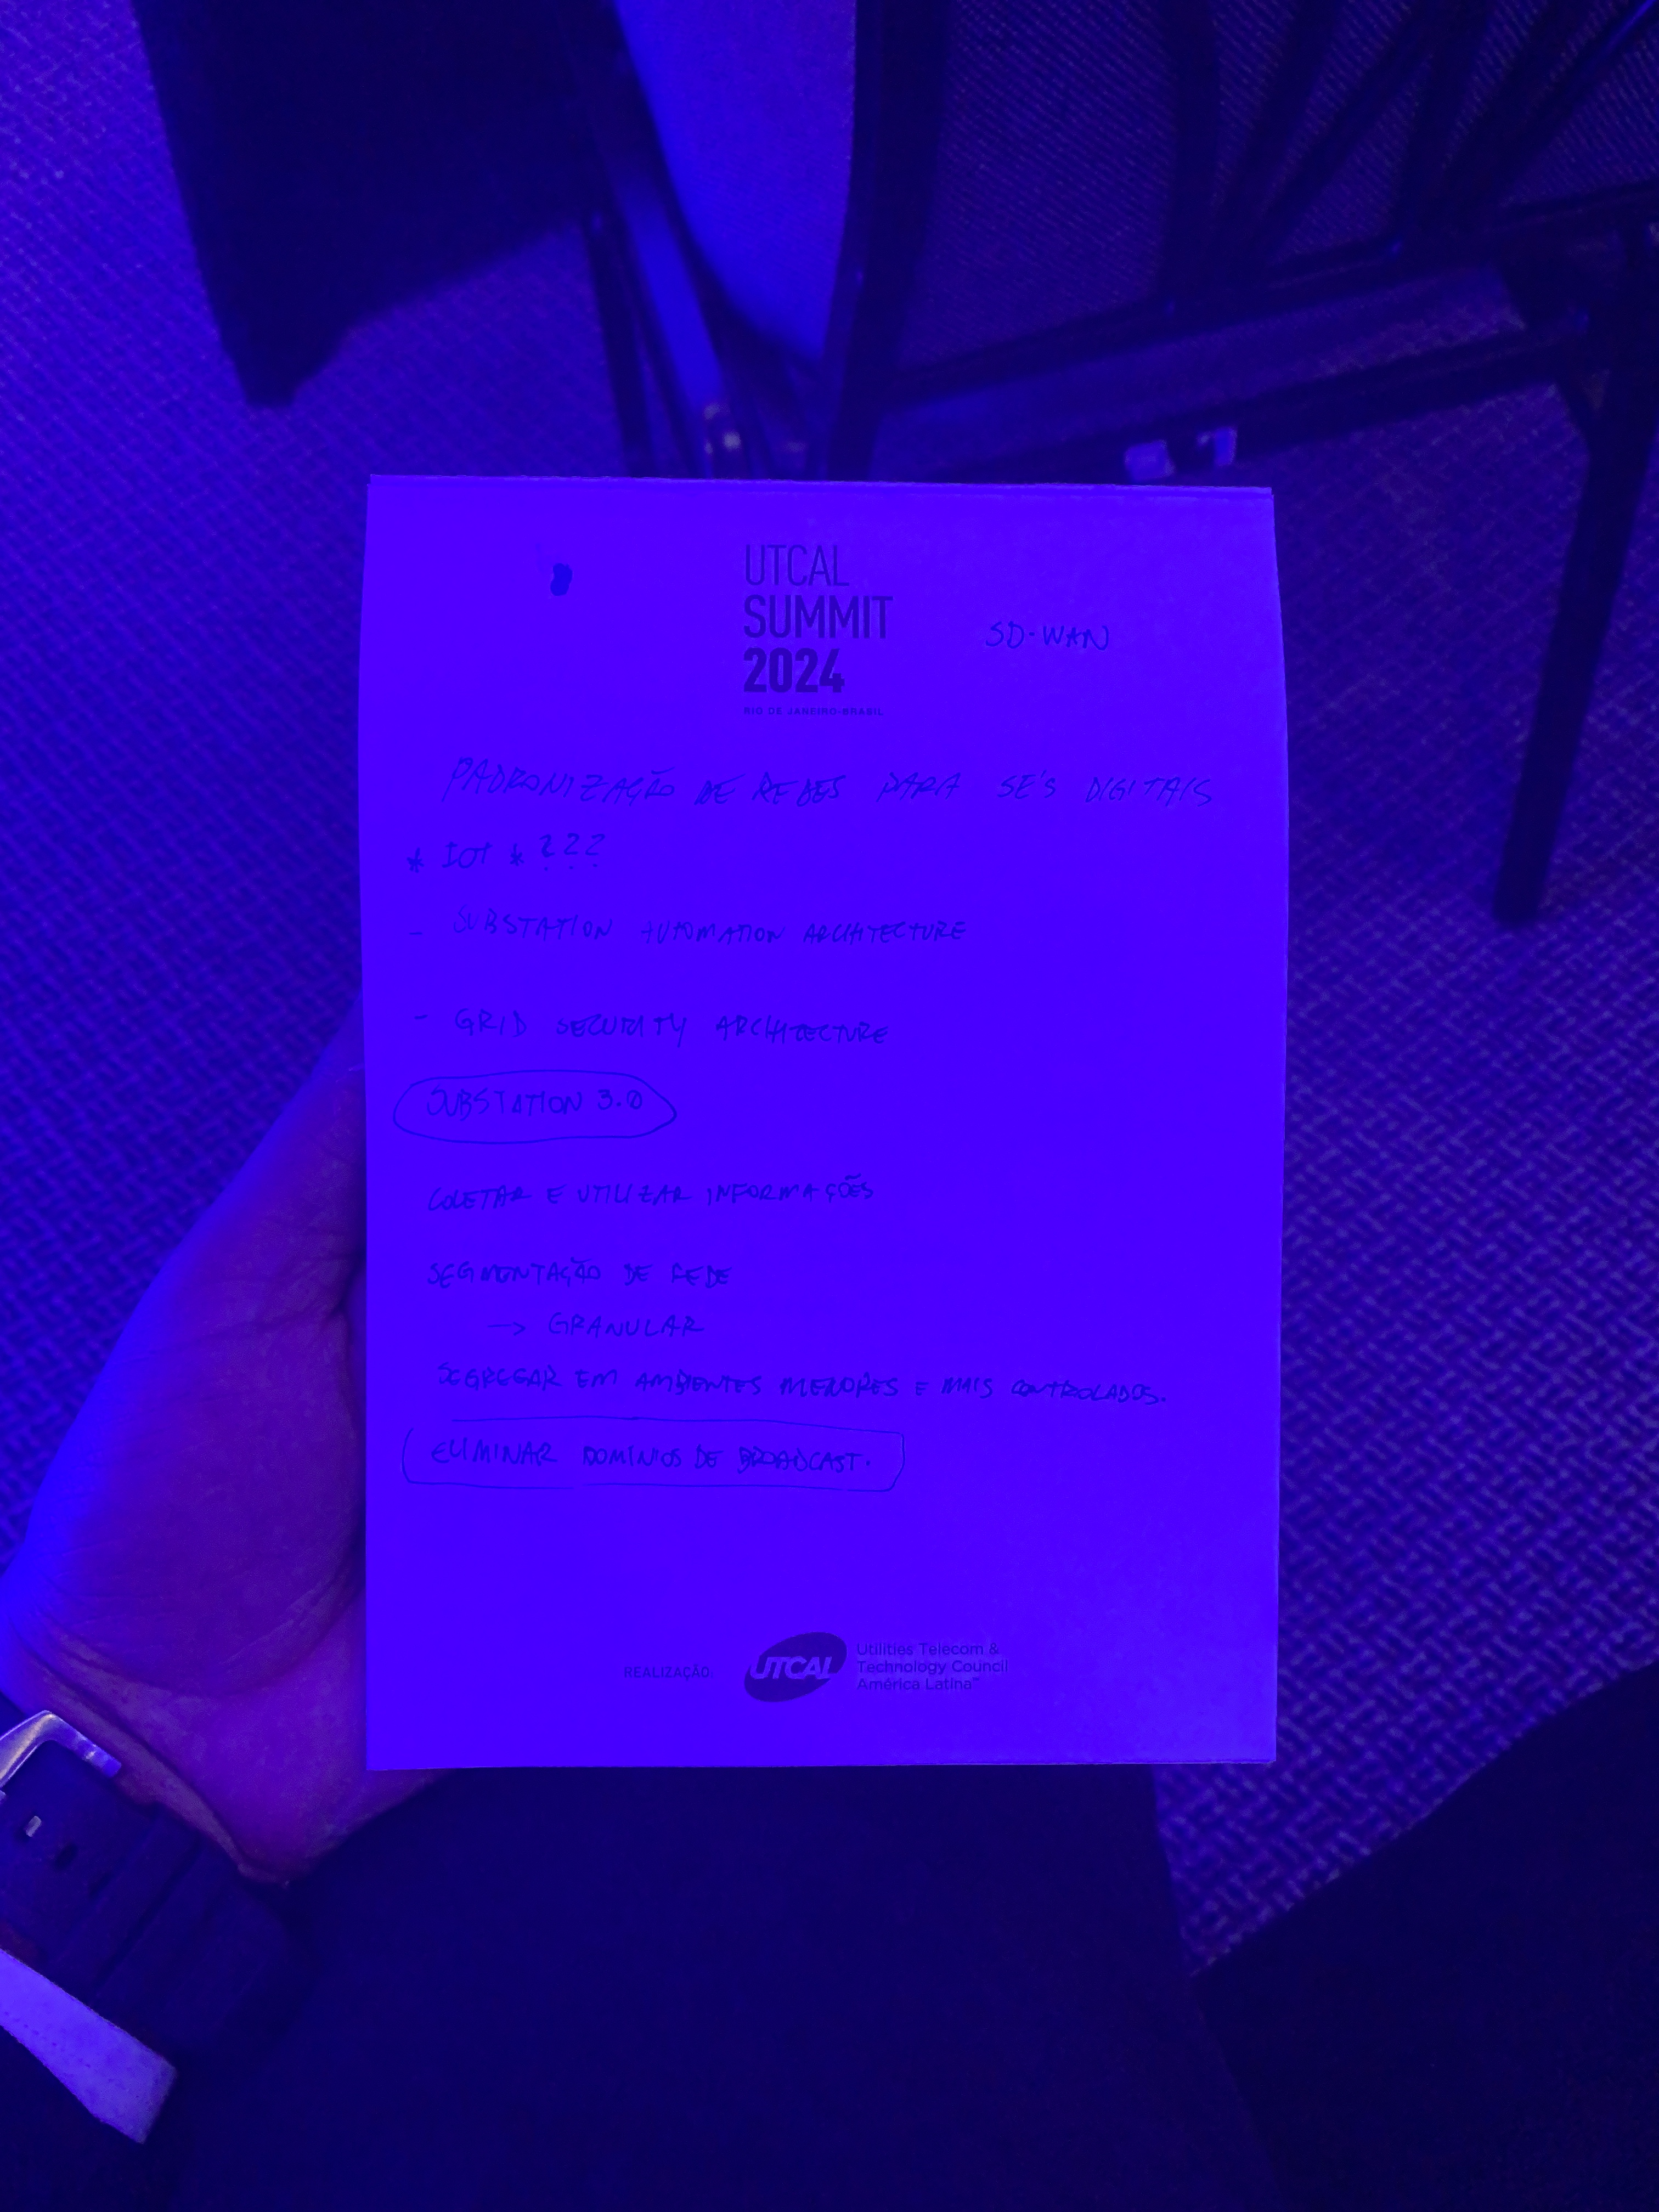 UTCAL
SUMMIT
2024
RIO DE JANEIRO-BRASIL
SD-WAN
PADRONIZAÇÃO DE REDES PARA SE'S DIGITAIS
* IOT * ???
- SUBSTATION AUTOMATION ARCHITECTURE
- GRID SECURITY ARCHITECTURE
SUBSTATION 3.0
COLETAR E UTILIZAR INFORMAÇÕES
SEGMENTAÇÃO DE REDE
→ GRANULAR
SEGREGAR EM AMBIENTES MENORES E MAIS CONTROLADOS.
ELIMINAR DOMÍNIOS DE BROADCAST.
REALIZAÇÃO
UTCAL
Utilities Telecom &
Technology Council
América Latina™